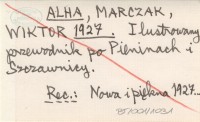 ALHA, MARCZAK,
WIKTOR 1927. Ilustrowany
przewodnik po Pieninach i
Szczawnicy.
Rec.: Nowa i piękna 1927...